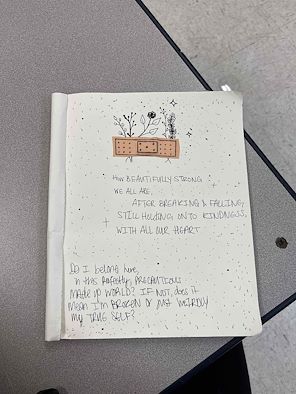 HOW BEAUTIFULLY STRONG
WE ALL ARE,
AFTER BREAKING & FALLING,
STILL HOLDING ONTO KINDNESS,
WITH ALL OUR HEART
Do I belong here,
in this PERFECTLY, PRECAUTIOUS
MADE UP WORLD? IF NOT, does it
mean I'm BROKEN or JUST WEIRDLY
my TRUE SELF?